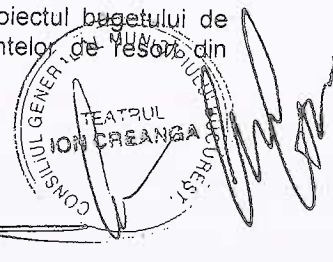 oiectul bugetului de
ntelor de resort din
CONSILIUL GENERAL AL MUNICIPIULUI BUCUREȘTI
TEATRUL
ION CREANGA